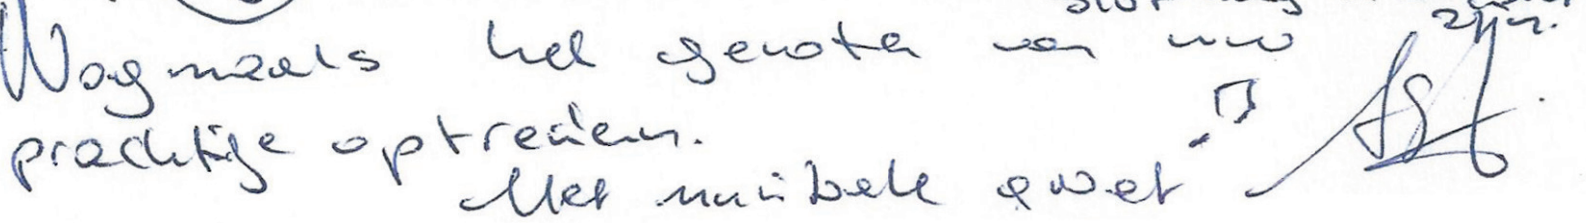 zijn.
Nogmaals heel genoten van uw
prachtige optreden.
Met muzikale groet